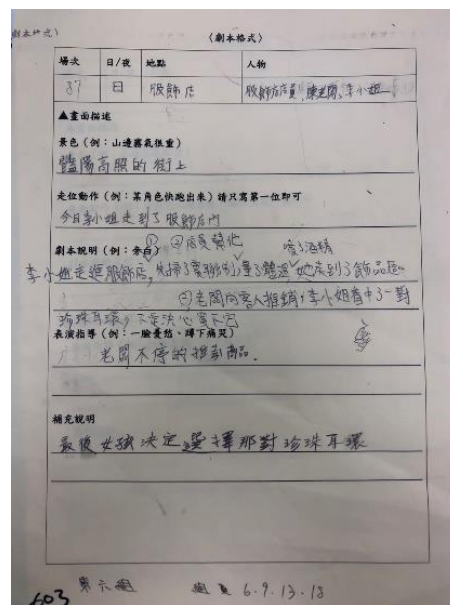 〈劇本格式〉
場次 日/夜 地點 人物
37 日 服飾店 服飾店店員、陳老闆、李小姐
▲畫面描述
景色(例:山邊霧氣很重)
豔陽高照的街上
走位動作(例:某角色快跑出來)請只寫第一位即可
今日李小姐走到了服飾店內
劇本說明(例:旁白) ① ②店員贊化
李小姐走進服飾店,她來到了飾品區
老闆向客人推銷,李小姐看中了一對
珍珠耳環,下定決心買下它
表演指導(例:一臉憂愁、蹲下痛哭)
老闆不停的推劃商品.
補充說明
最後女孩決定選擇那對珍珠耳環
第六組 組員 6.9.13.18
603